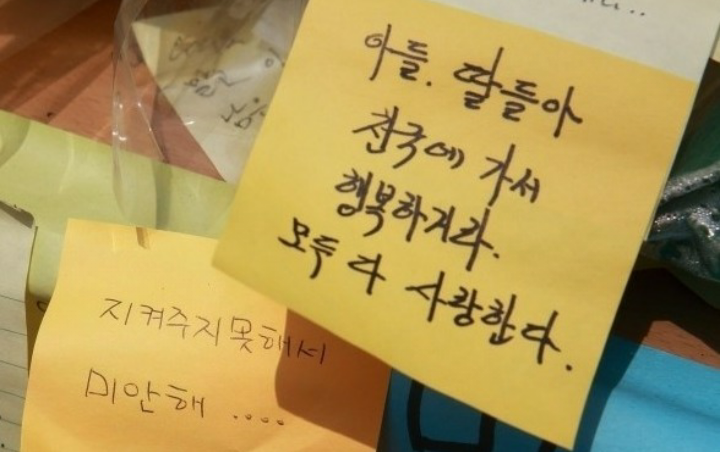 아들. 딸들아
천국에 가서
행복하거라.
모두 다 사랑한다.
지켜주지못해서
미안해 ....